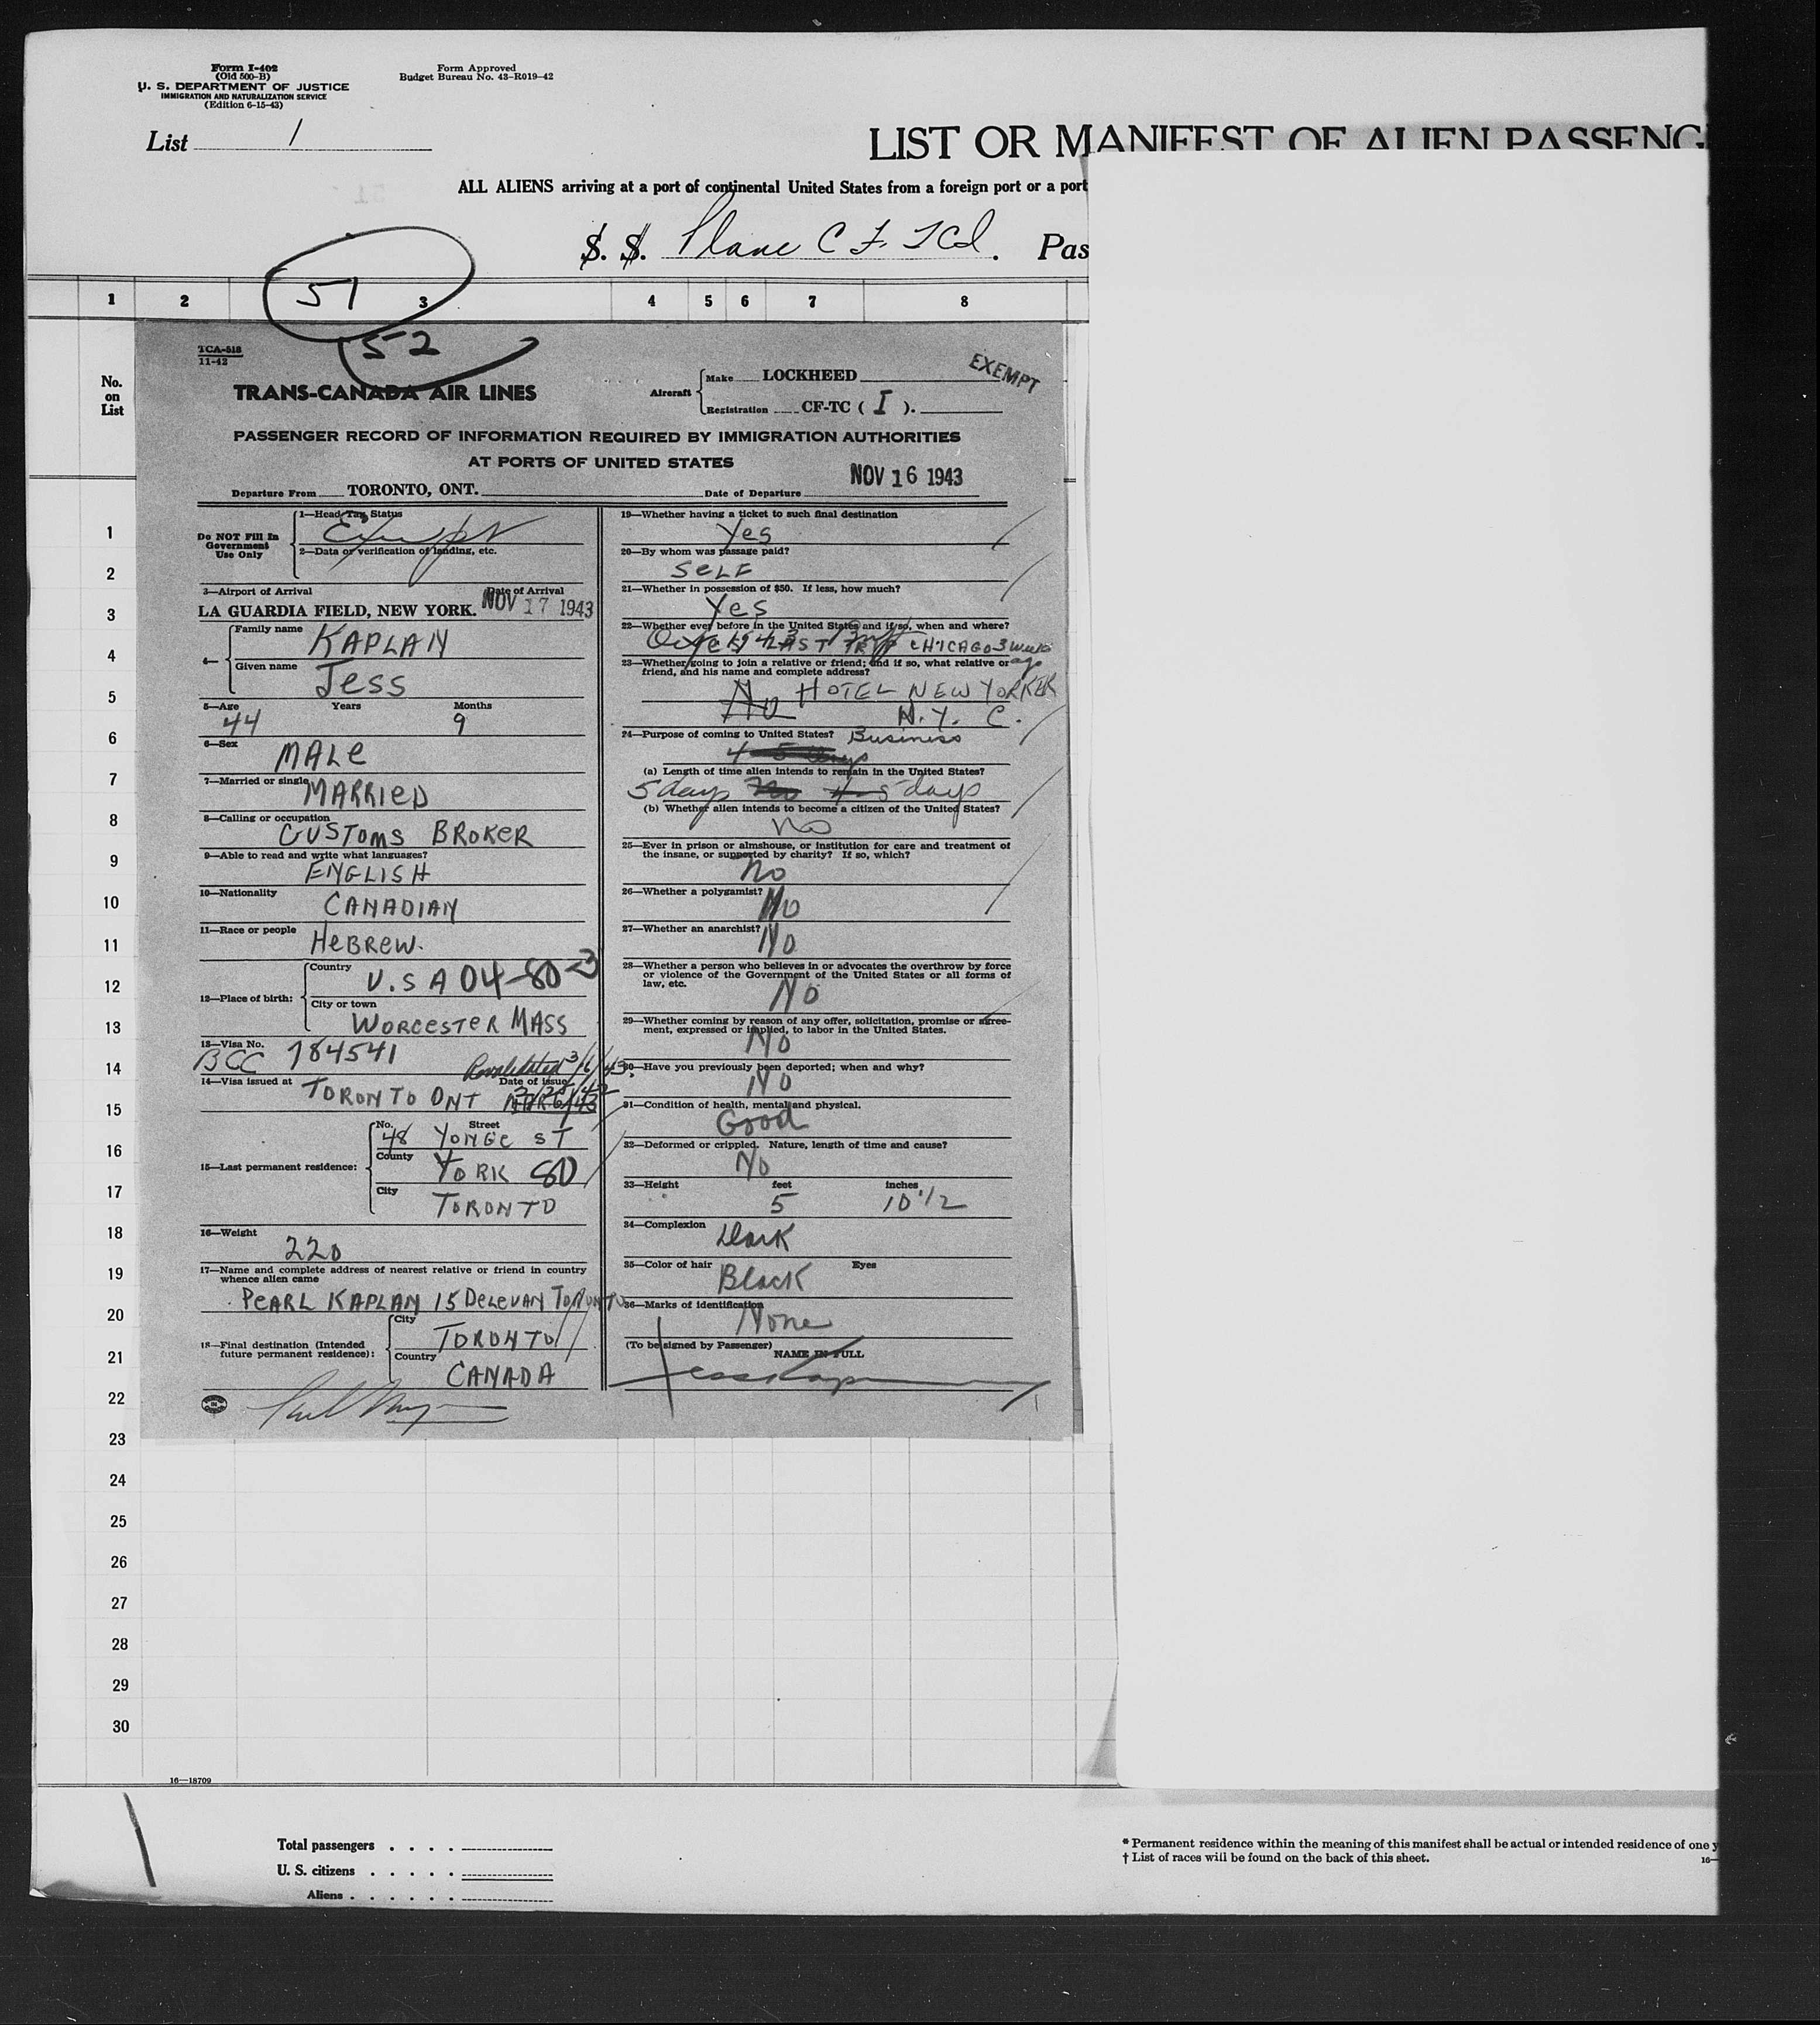 Form I-402
(Old 500-B)
U. S. DEPARTMENT OF JUSTICE
IMMIGRATION AND NATURALIZATION SERVICE
(Edition 6-15-43)
Form Approved
Budget Bureau No. 43-R019-42
List 1
LIST OR MANIFEST OF ALIEN PASSENG
ALL ALIENS arriving at a port of continental United States from a foreign port or a port
S. S. Plane C F. TCI. Pas
1 2 3 4 5 6 7 8
51
52
No.
on
List
TCA-518
11-42
TRANS-CANADA AIR LINES
Aircraft
Make LOCKHEED
Registration CF-TC ( I ).
EXEMPT
PASSENGER RECORD OF INFORMATION REQUIRED BY IMMIGRATION AUTHORITIES
AT PORTS OF UNITED STATES
Departure From TORONTO, ONT. Date of Departure NOV 16 1943
Do NOT Fill In
Government
Use Only
1—Head Tax Status
Exempt
2—Data or verification of landing, etc.
3—Airport of Arrival Date of Arrival
LA GUARDIA FIELD, NEW YORK. NOV 17 1943
4—
Family name KAPLAN
Given name Jess
5—Age Years Months
44 9
6—Sex
MALE
7—Married or single
MARRIED
8—Calling or occupation
CUSTOMS BROKER
9—Able to read and write what languages?
ENGLISH
10—Nationality
CANADIAN
11—Race or people
HEBREW.
12—Place of birth:
Country
U.S A 04-80-3
City or town
WORCESTER MASS
13—Visa No.
BCC 784541
Revalidated 3/6/43.
14—Visa issued at Date of issue
TORONTO ONT
15—Last permanent residence:
No. Street
48 YONGE ST
County
YORK 80
City
TORONTO
16—Weight
220
17—Name and complete address of nearest relative or friend in country
whence alien came
PEARL KAPLAN 15 DELEVAN TORONTO
18—Final destination (Intended
future permanent residence):
City
TORONTO
Country
CANADA
19—Whether having a ticket to such final destination
Yes
20—By whom was passage paid?
SELF
21—Whether in possession of $50. If less, how much?
Yes
22—Whether ever before in the United States and if so, when and where?
Yes LAST TRIP CHICAGO 3 weeks
ago
23—Whether going to join a relative or friend; and if so, what relative or
friend, and his name and complete address?
No HOTEL NEW YORKER
No N. Y. C.
24—Purpose of coming to United States? Business
4-5 days
(a) Length of time alien intends to remain in the United States?
5 days No 4-5 days
(b) Whether alien intends to become a citizen of the United States?
no
25—Ever in prison or almshouse, or institution for care and treatment of
the insane, or supported by charity? If so, which?
No
26—Whether a polygamist?
No
27—Whether an anarchist?
No
28—Whether a person who believes in or advocates the overthrow by force
or violence of the Government of the United States or all forms of
law, etc.
No
29—Whether coming by reason of any offer, solicitation, promise or agree-
ment, expressed or implied, to labor in the United States.
No
30—Have you previously been deported; when and why?
No
31—Condition of health, mental and physical.
Good
32—Deformed or crippled. Nature, length of time and cause?
No
33—Height feet inches
5 10 1/2
34—Complexion
Dark
35—Color of hair Eyes
Black
36—Marks of identification
None
(To be signed by Passenger)
NAME IN FULL
Jess Kaplan
1
2
3
4
5
6
7
8
9
10
11
12
13
14
15
16
17
18
19
20
21
22
23
24
25
26
27
28
29
30
16—18709
Total passengers
U. S. citizens
Aliens
* Permanent residence within the meaning of this manifest shall be actual or intended residence of one y
† List of races will be found on the back of this sheet.
16—